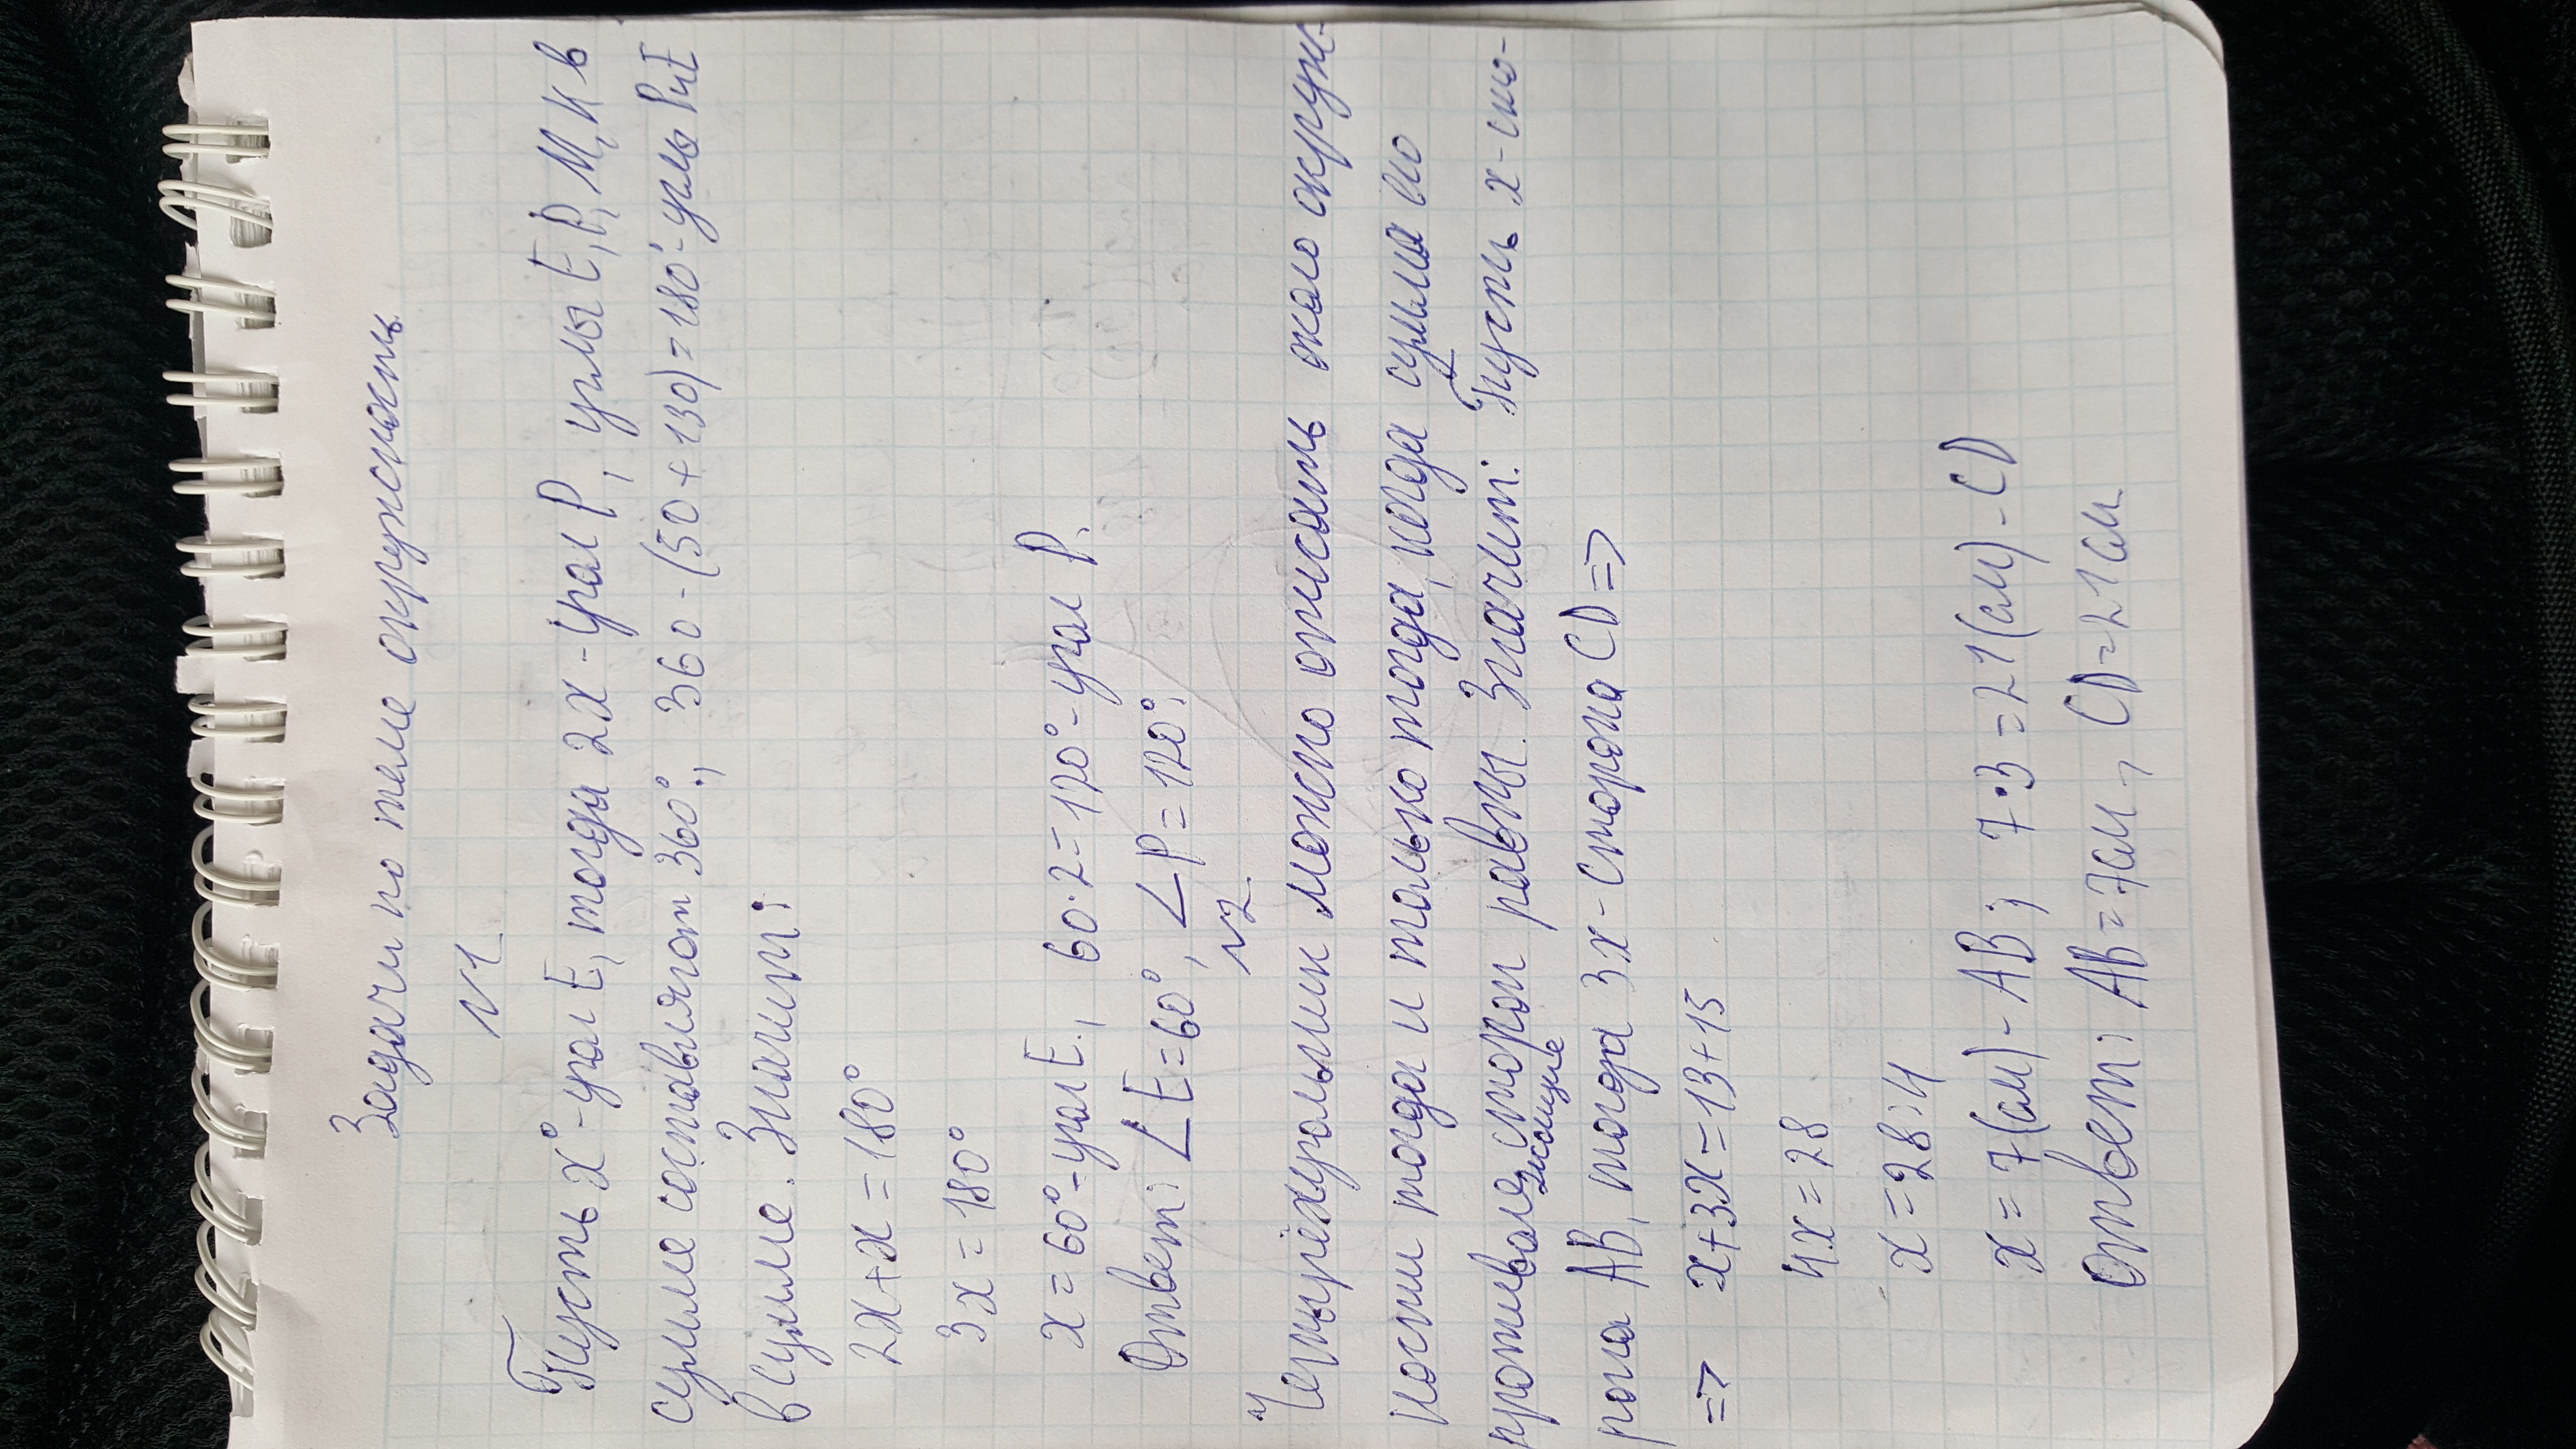 Задачи по теме окружность
N1
Пусть x°-угол E, тогда 2x-угол P, углы E, P, M, K в
сумме составляют 360°, 360-(50+130)=180°-углы P и E
в сумме. Значит:
2x+x=180°
3x=180°
x=60°-угол E., 60·2=120°-угол P.
Ответ: ∠E=60°, ∠P=120°.
N2.
Четырёхугольник можно описать около окруж-
ности тогда и только тогда, когда сумма его
противоле стором равны. Значит: Пусть x-сто-
жащие
рона AB, тогда 3x-сторона CD =>
=> x+3x=13+15
4x=28
x=28:4
x=7(см)-AB; 7·3=21(см)-CD
Ответ: AB=7см, CD=21см